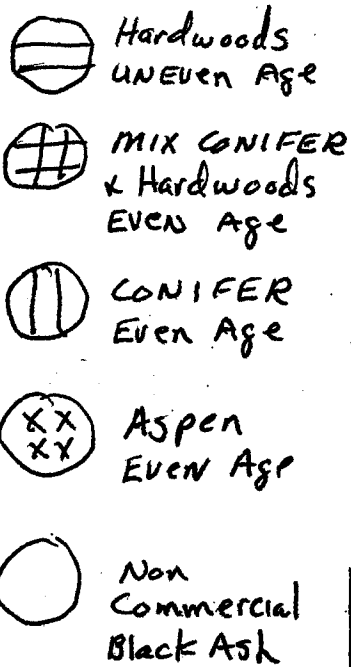 Hardwoods
UNEven Age
MIX CONIFER
& Hardwoods
EVEN Age
CONIFER
Even Age
XX
XX
Aspen
EVEN Age
Non
Commercial
Black Ash